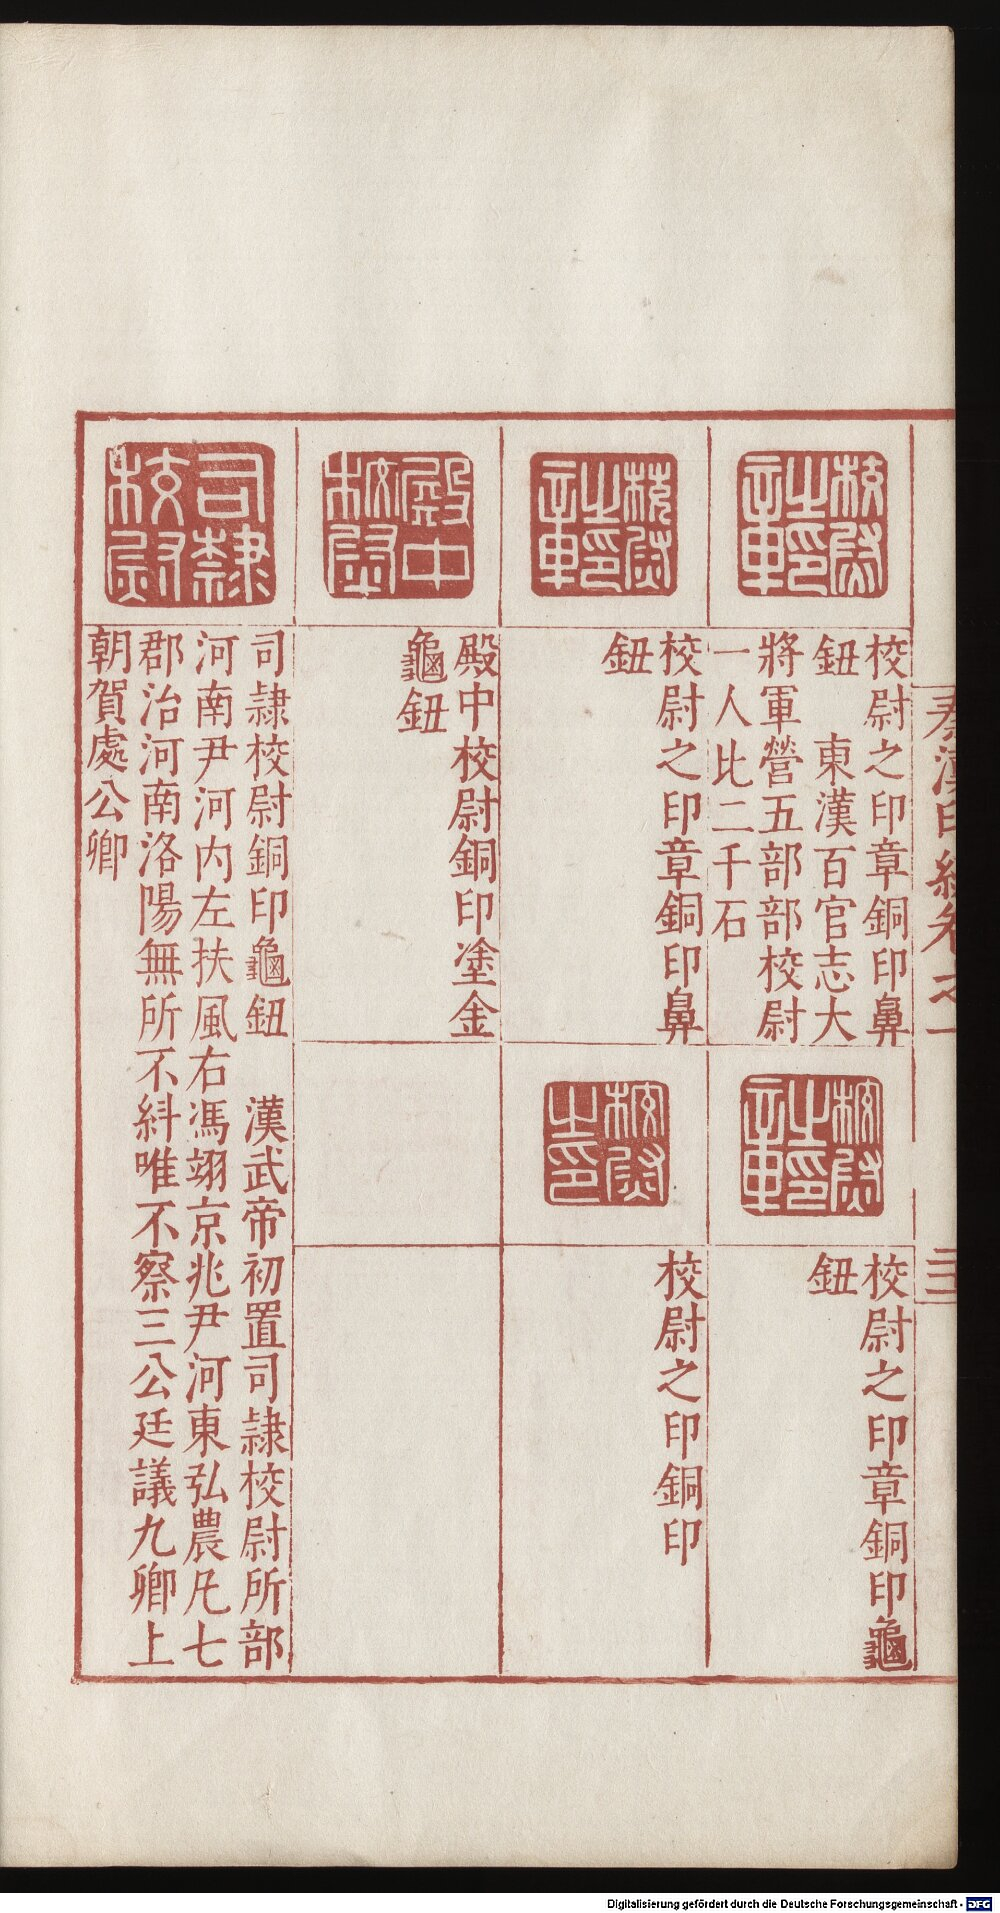 秦漢印統卷之一
三
校尉之印章
校尉之印章銅印鼻
鈕　東漢百官志大
將軍營五部部校尉
一人比二千石
校尉之印章
校尉之印章銅印龜
鈕
校尉之印章
校尉之印章銅印鼻
鈕
校尉之印
校尉之印銅印
殿中校尉
殿中校尉銅印塗金
龜鈕
司隸校尉
司隸校尉銅印龜鈕　漢武帝初置司隸校尉所部
河南尹河內左扶風右馮翊京兆尹河東弘農凡七
郡治河南洛陽無所不糾唯不察三公廷議九卿上
朝賀處公卿
Digitalisierung gefördert durch die Deutsche Forschungsgemeinschaft - DFG